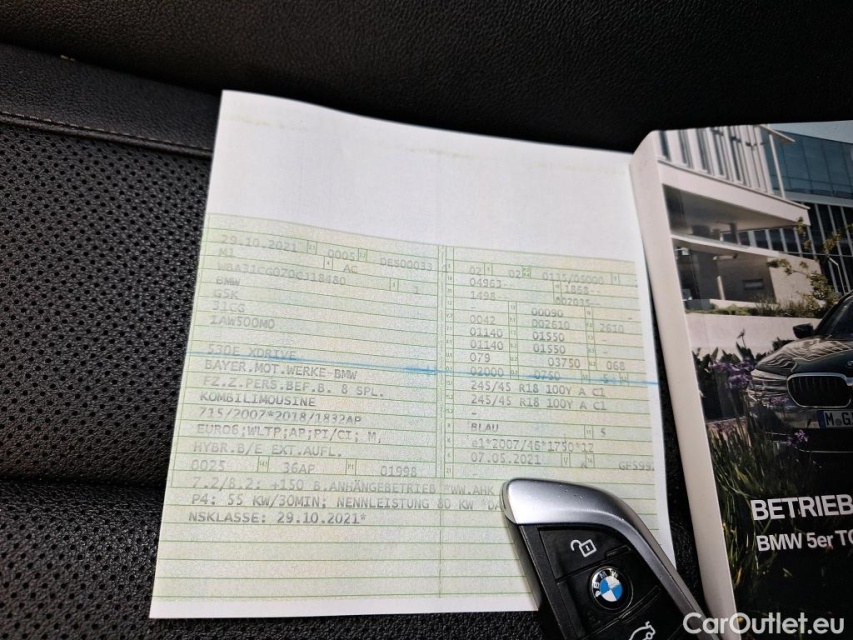 29.10.2021 0005 DES00033
M1 AC
WBA31CG070CJ18480 3
BMW
G5K
31CG
1AW500M0
530E XDRIVE
BAYER.MOT.WERKE-BMW
FZ.Z.PERS.BEF.B. 8 SPL.
KOMBILIMOUSINE
715/2007*2018/1832AP
EURO6;WLTP;AP;PI/CI; M,
HYBR.B/E EXT.AUFL.
0025 36AP 01998
02 02 0135/06000
04963-- 1868
1498 002035--
00090 --
0042 002610 2610
01140 01550 -
01140 01550 -
079 03750 068
02000 0750 5 -
245/45 R18 100Y A C1
245/45 R18 100Y A C1
-
BLAU 5
e1*2007/46*1750*12
07.05.2021 A
7.2/8.2: +150 B.ANHÄNGEBETRIEB
P4: 55 KW/30MIN; NENNLEISTUNG 80 KW
NSKLASSE: 29.10.2021*
BETRIEB
BMW 5er TO
BMW
CarOutlet.eu